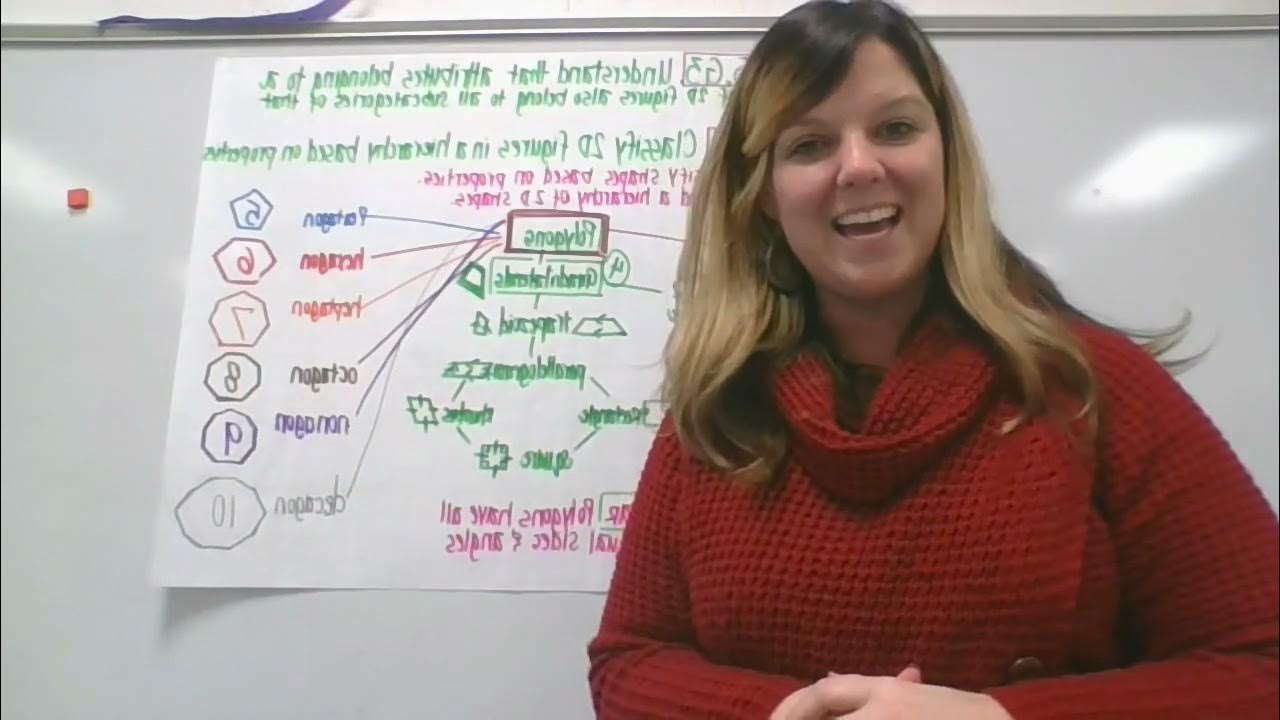 5.G3 Understand that attributes belonging to a
of 2D figures also belong to all subcategories of that
Classify 2D figures in a hierarchy based on properties
shapes based on properties.
a hierarchy of 2D shapes.
Polygons
4
Quadrilaterals
trapezoid
parallelogram
rectangle
rhombus
square
Pentagon
5
hexagon
6
heptagon
7
octagon
8
nonagon
9
decagon
10
Polygons have all
sides & angles